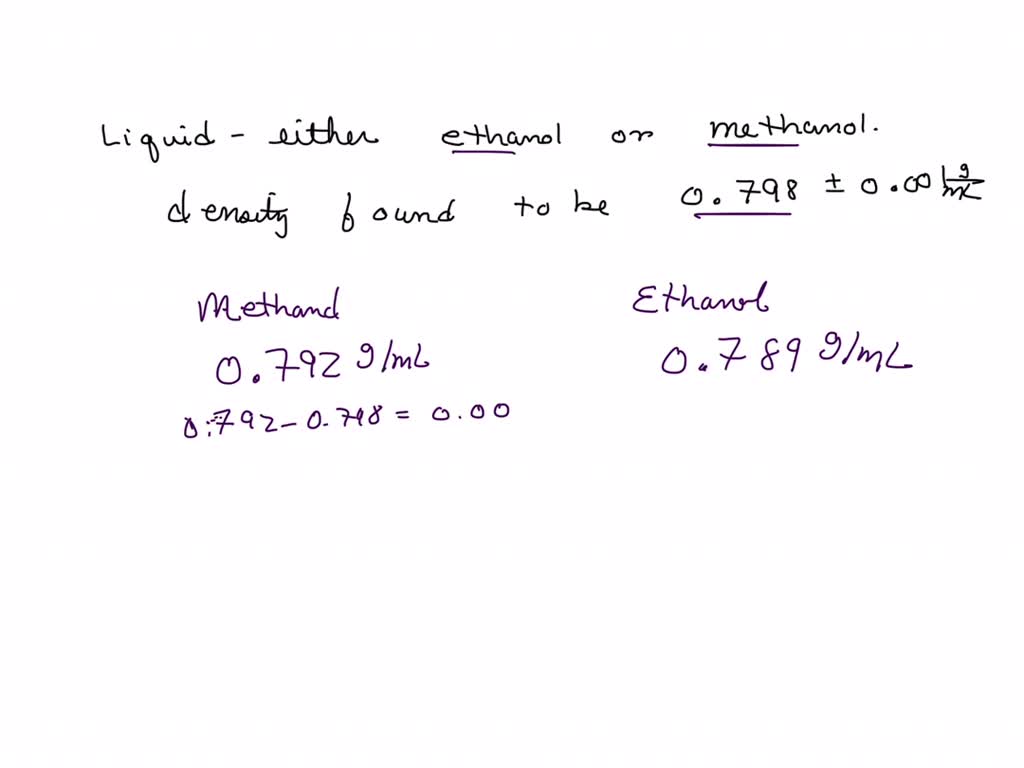 Liquid - either ethanol or methanol.
density found to be 0.798 ± 0.001 g/mL
Methanol Ethanol
0.792 g/mL 0.789 g/mL
0.792 - 0.798 = 0.00